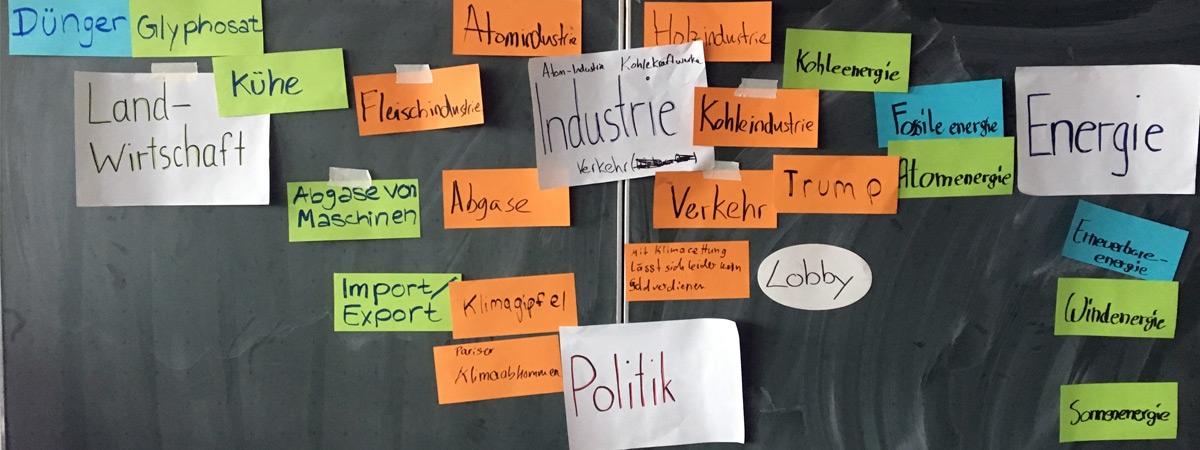 Dünger
Glyphosat
Kühe
Land-
Wirtschaft
Fleischindustrie
Atomindustrie
Holzindustrie
Atom-Industrie Kohlekraftwerke
Industrie
Verkehr
Kohleindustrie
Kohleenergie
Fossile energie
Atomenergie
Energie
Abgase von
Maschinen
Abgase
Verkehr
Trump
Erneuerbare-
energie
Windenergie
Sonnenenergie
Mit Klimarettung
lässt sich leider kein
Geld verdienen
Lobby
Import/
Export
Klimagipfel
Pariser
Klimaabkommen
Politik